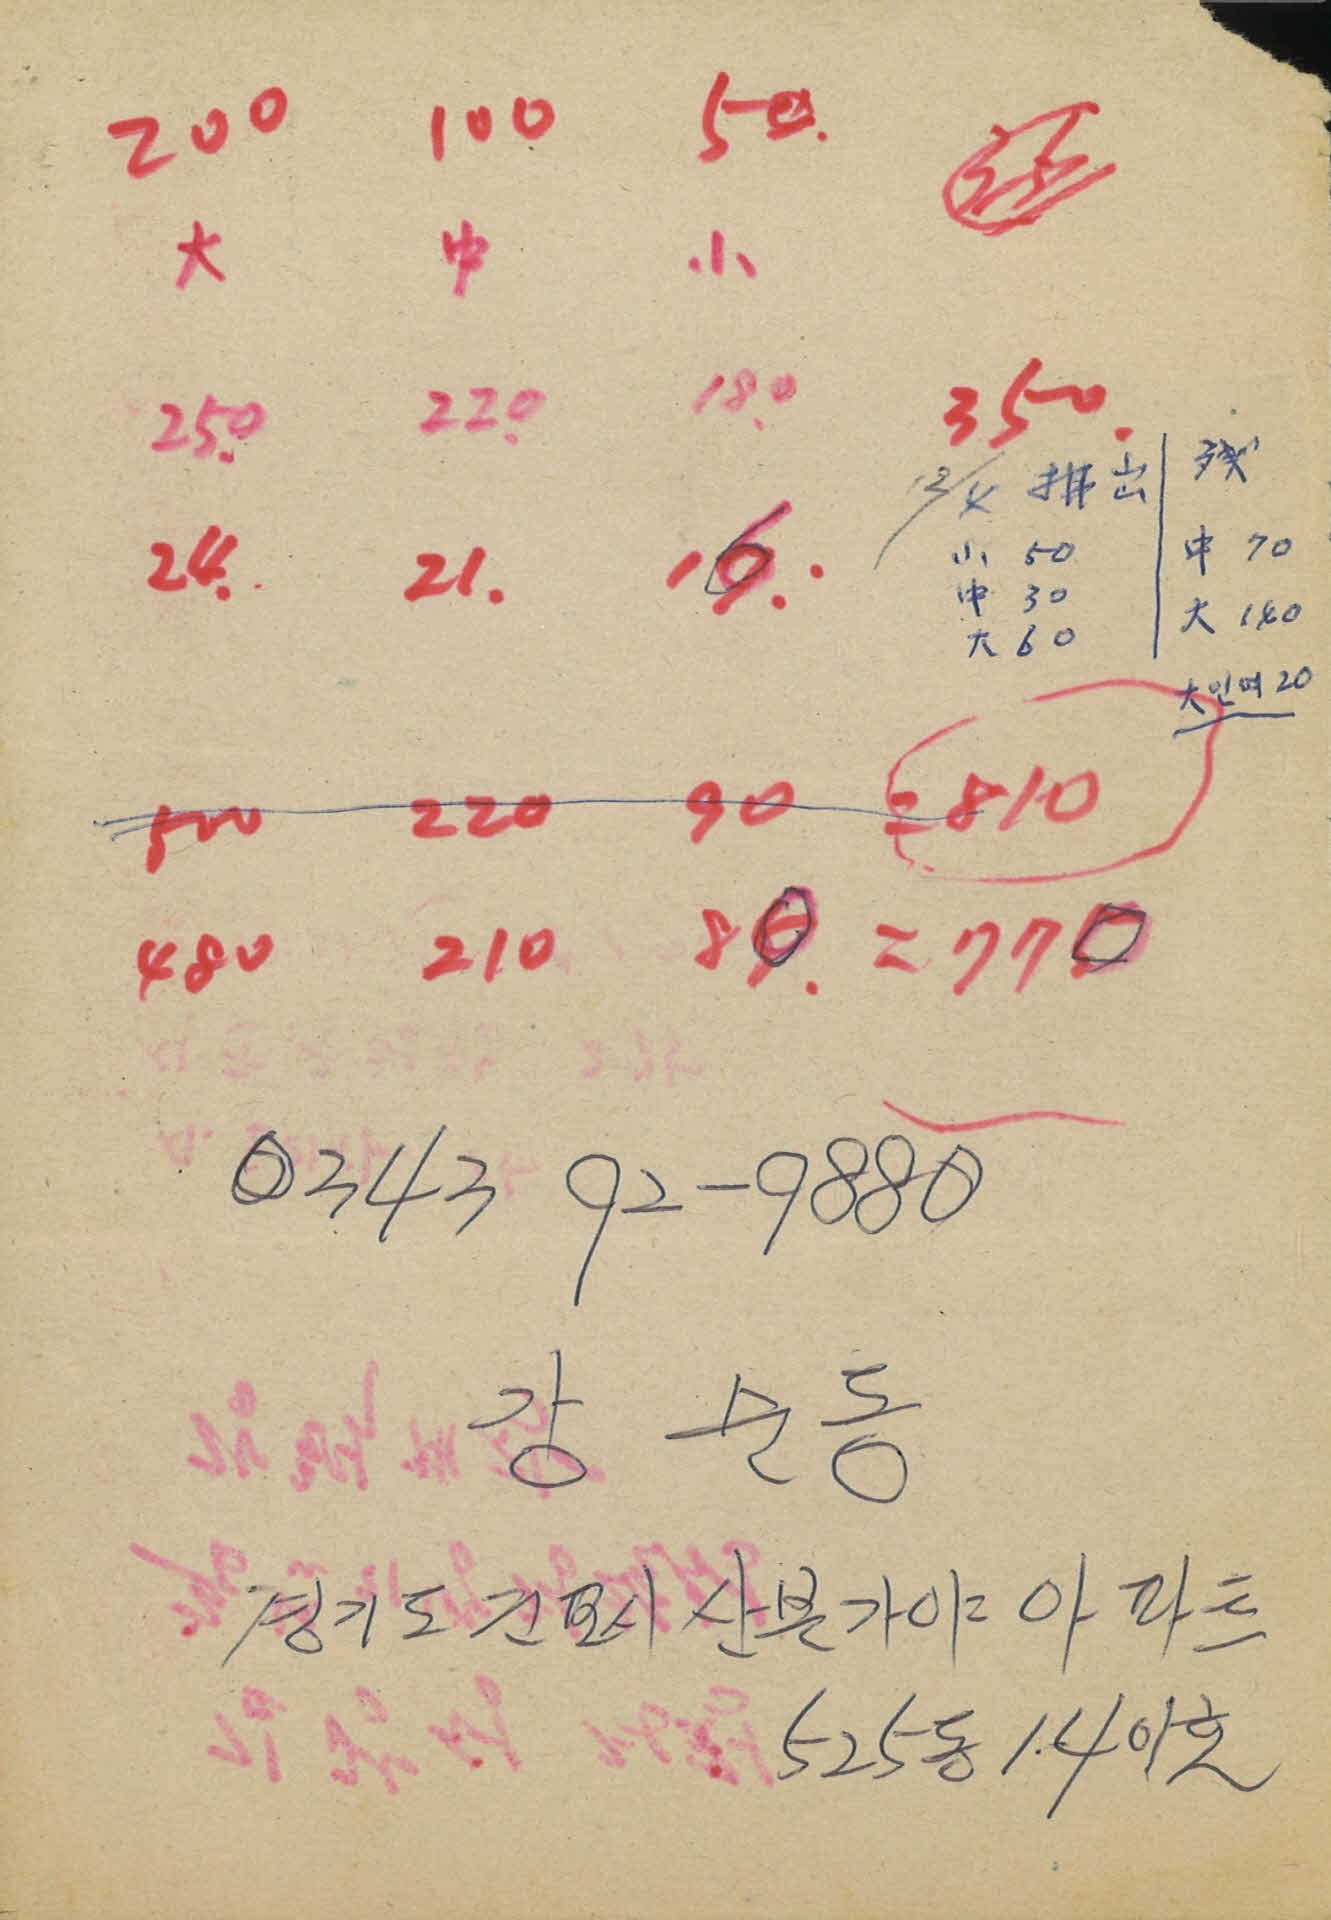 200 100 50.
大 中 小
250. 220. 180. 350.
12/4 排出 残
24. 21. 16.
小 50 中 70
中 30 大 140
大 60
大인며 20
500 220 90 =810
480 210 80. =770
0343 92-9880
강 순동
경기도 군포시 산본 가야 아파트
525동 1.401호